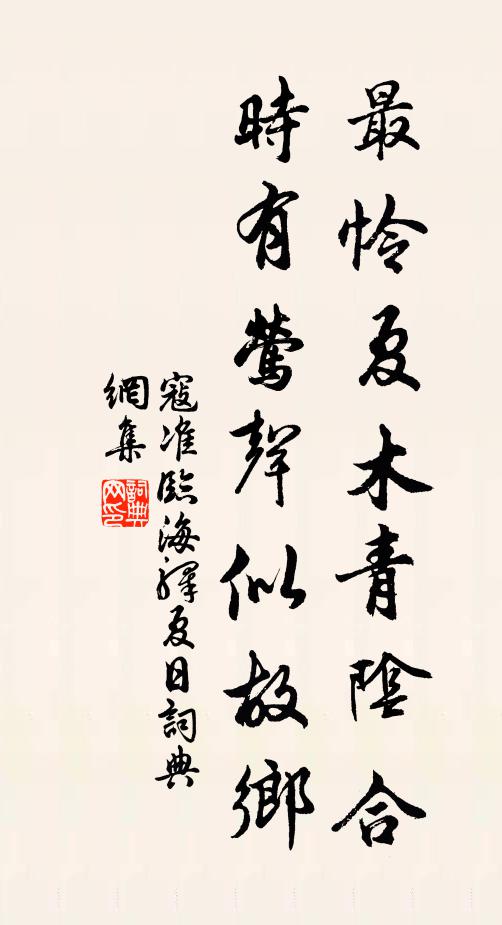 最怜夏木青陰合
時有鶯聲似故鄉
寇准臨海驛夏日詞典
網集
詞典
网印